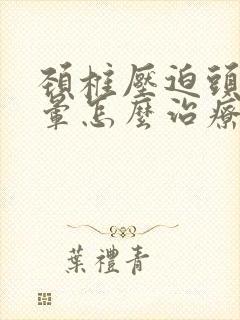 頚柱壓迫頭
暈怎麼治療
葉禮青